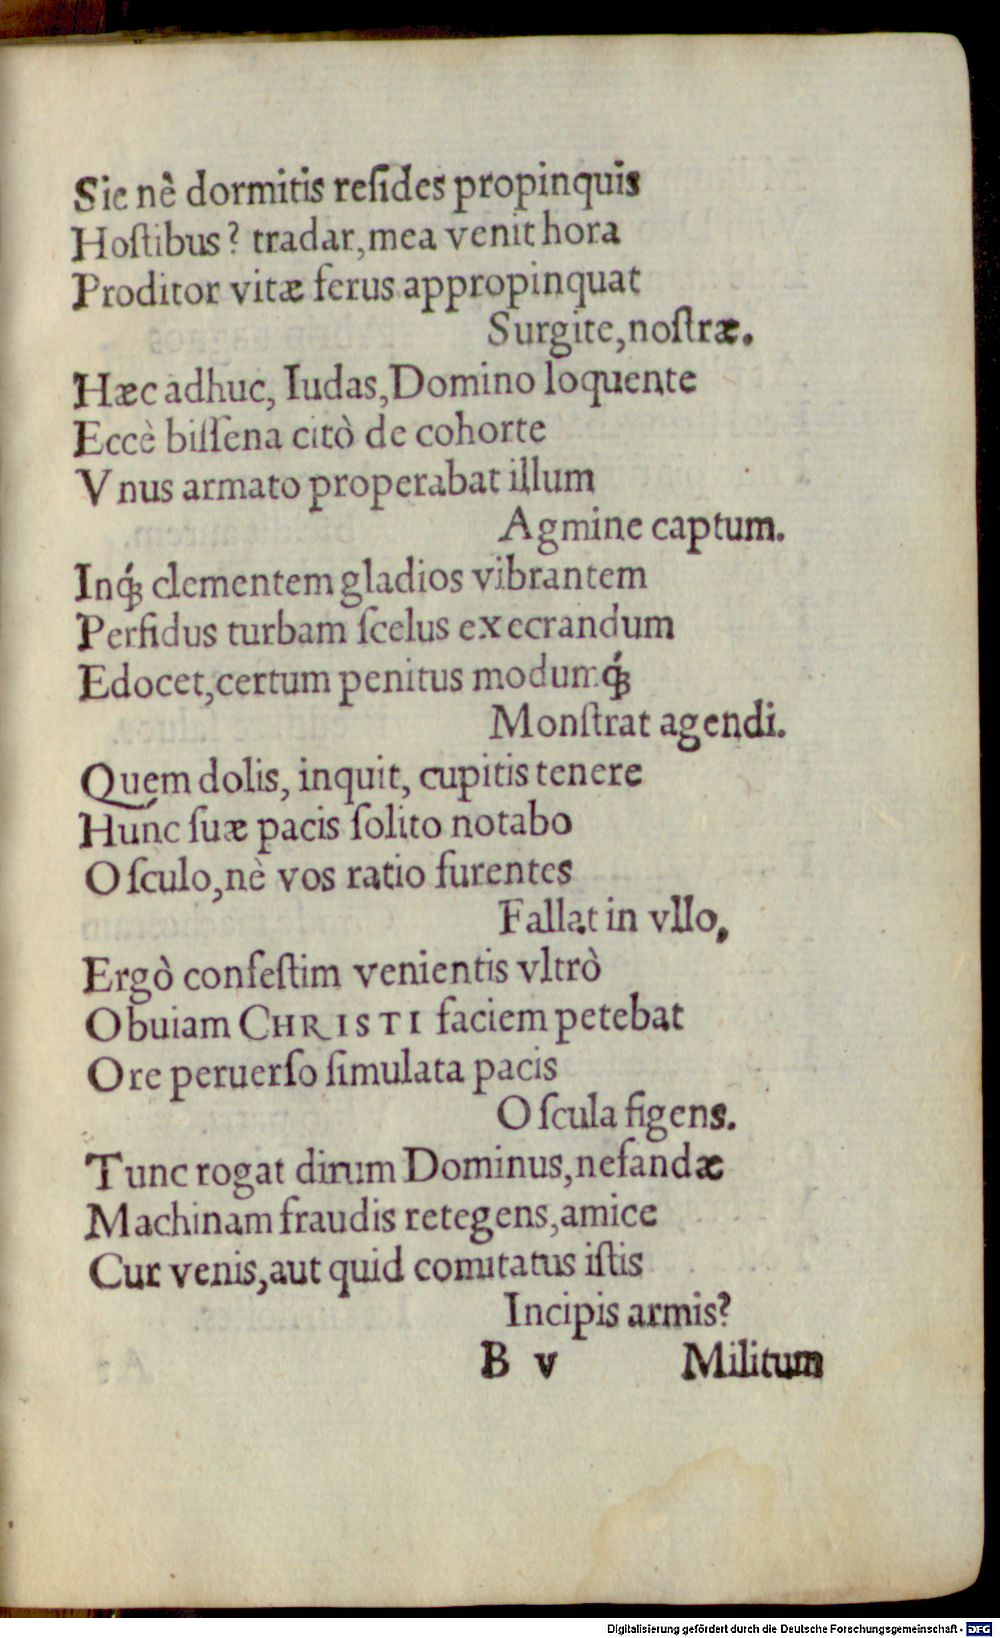 Sic nè dormitis reſides propinquis
Hoſtibus? tradar, mea venit hora
Proditor vitæ ferus appropinquat
Surgite, noſtræ.
Hæc adhuc, Iudas, Domino loquente
Eccè biſſena citò de cohorte
Vnus armato properabat illum
Agmine captum.
Inq́ꝫ clementem gladios vibrantem
Perfidus turbam ſcelus execrandum
Edocet, certum penitus modumq́ꝫ
Monſtrat agendi.
Quem dolis, inquit, cupitis tenere
Hunc ſuæ pacis ſolito notabo
Oſculo, nè vos ratio furentes
Fallat in vllo,
Ergò confeſtim venientis vltrò
Obuiam CHRISTI faciem petebat
Ore peruerſo ſimulata pacis
Oſcula figens.
Tunc rogat dirum Dominus, nefandæ
Machinam fraudis retegens, amice
Cur venis, aut quid comitatus iſtis
Incipis armis?
B v Militum
Digitalisierung gefördert durch die Deutsche Forschungsgemeinschaft - DFG